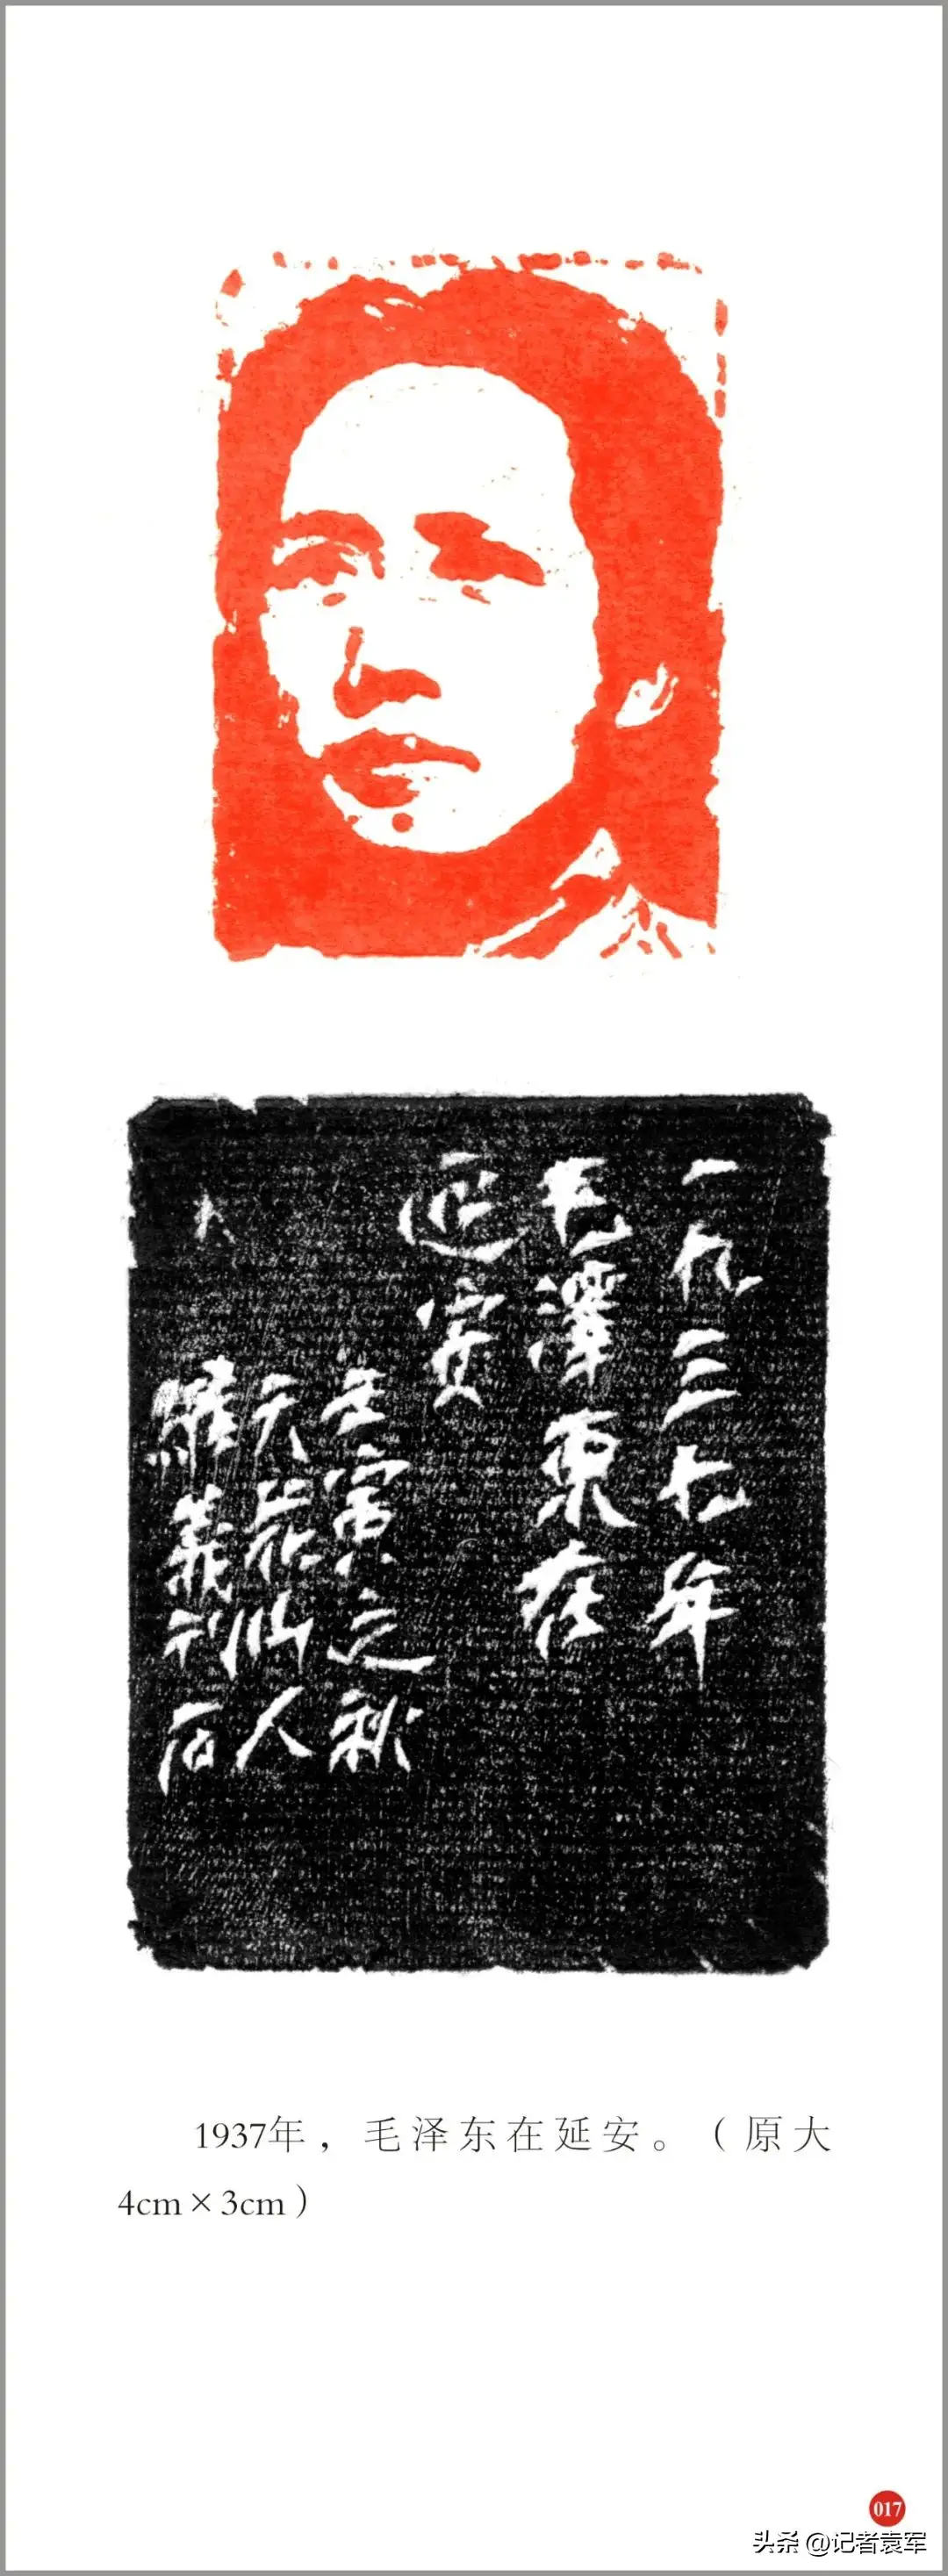 一九三七年
毛澤東在
延安
壬寅之秋
天花山人
羅義刊石
1937年，毛泽东在延安。（原大
4cm×3cm）
017
头条 @记者袁军